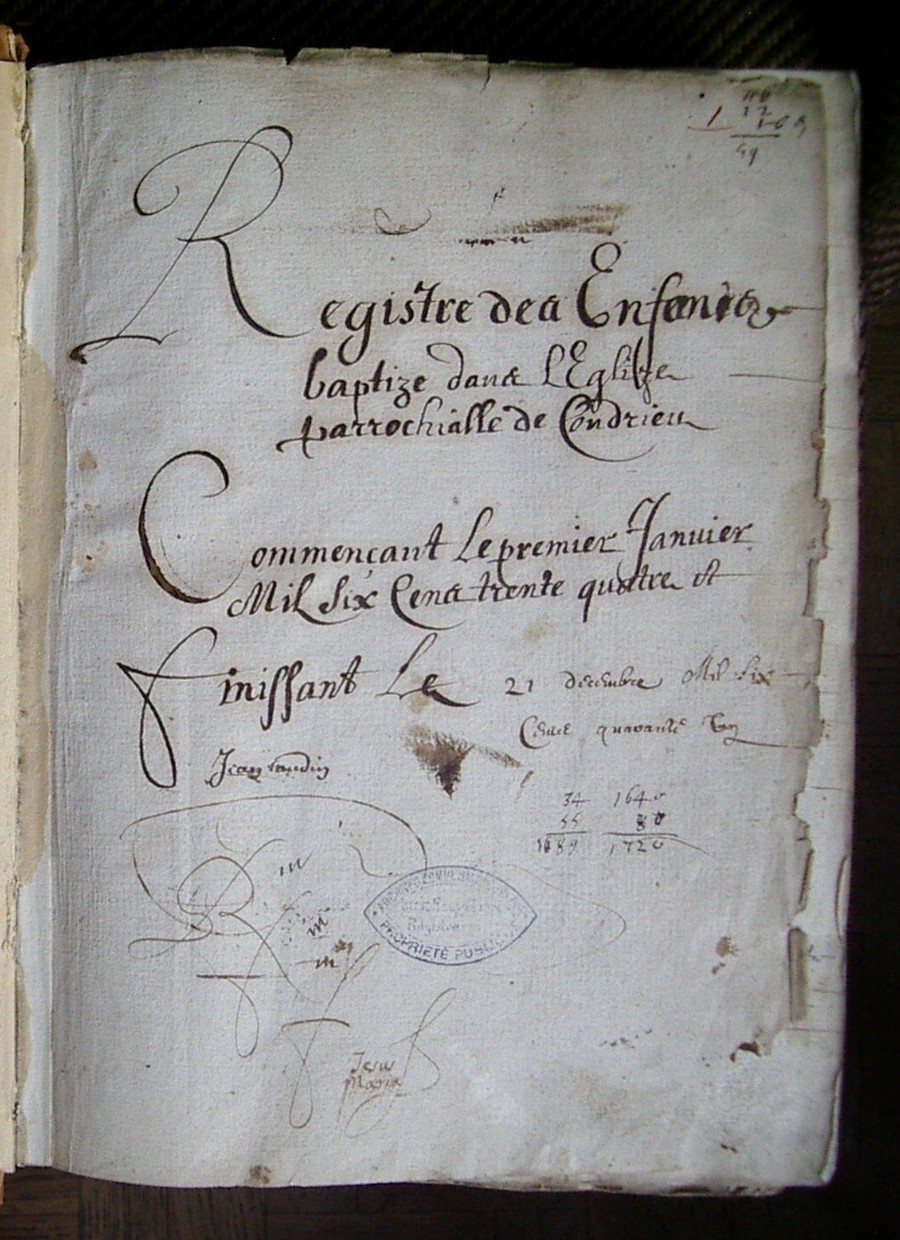 1
49
Registre des Enfants
baptize dans l'Eglize
parrochialle de Condrieu
Commencant Le premier Janvier
Mil Six Cens trente quattre et
Finissant Le 21 decembre Mil Six
Cens quarante Un
Jean
34 1640
55 80
1720
PROPRIETE PUBLIQUE
Jesus
Maria